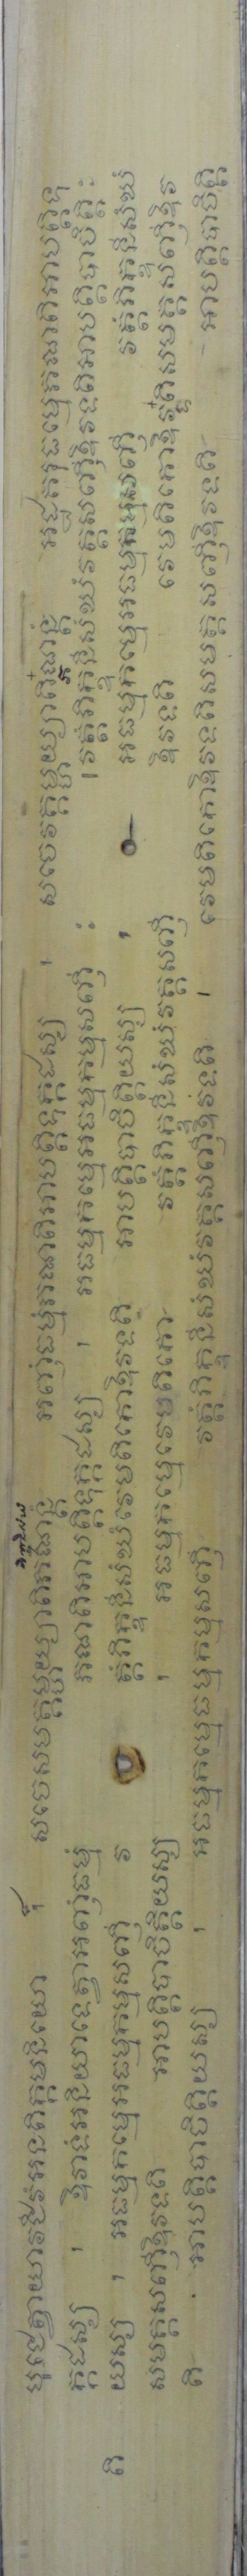 បុច្ឆេត្វាយាវជីវំអនតិក្កមនិយោ ៎ សចេសមគ្គម្ហយ្យាតិភណន្តំ អញ្ញំធម្មំភណតិអាបត្តិទុក្កដស្ស ។ សចេវគ្គម្ហយ្យាតិភណន្តំ អដ្ឋគរុធម្មេភណតិអាបត្តិទុ
ក្កដស្ស ។ ឱវាទំអនិយាទេត្វាអញ្ញំធម្មំ ភណតិអាបត្តិទុក្កដស្ស ។ អធម្មកម្មេអធម្មកម្មសញ្ញី ៈ វគ្គំភិក្ខុនីសំឃំវគ្គសញ្ញីឱវទតិអាបត្តិបាចិត្តិ ៈ
តិ យស្ស ។ អធម្មកម្មេអធម្មកម្មសញ្ញី វ គ្គំភិក្ខុនីសំឃំវេមតិកោឱវទតិ អាបត្តិបាចិត្តិយស្ស ។ អធម្មកម្មេអធម្មកម្មសញ្ញី វគ្គំភិក្ខុនីសំឃំ
សមគ្គសញ្ញីឱវទតិ អាបត្តិបាចិត្តិយស្ស ។ អធម្មកម្មេវេមតិកោ វគ្គំភិក្ខុនីសំឃំវគ្គសញ្ញី ឱវទតិ វេមតិកោឱវទតិសមគ្គសញ្ញីឱវ
តិ អាបត្តិបាចិត្តិយស្ស ។ អធម្មកម្មេធម្មកម្មសញ្ញី វគ្គំភិក្ខុនីសំឃំវគ្គសញ្ញីឱវទតិ ។ វេមតិកោឱវទតិសមគ្គសញ្ញីឱវទតិ អាបត្តិបាចិត្តិ